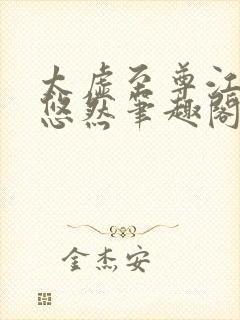 太虚至尊江
悠然笔趣阁
金杰安